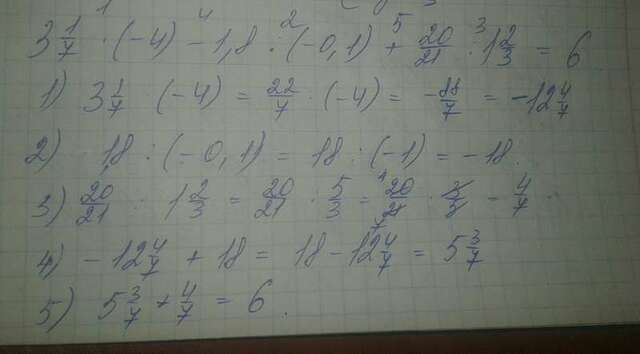 1 4 2 5 3
3 1/7 · (-4) - 1,8 : (-0,1) + 20/21 : 1 2/3 = 6
1) 3 1/7 · (-4) = 22/7 · (-4) = -88/7 = -12 4/7
2) 1,8 : (-0,1) = 18 : (-1) = -18.
3) 20/21 : 1 2/3 = 20/21 : 5/3 = 20/21 · 3/5 = 4/7
4) -12 4/7 + 18 = 18 - 12 4/7 = 5 3/7
5) 5 3/7 + 4/7 = 6.